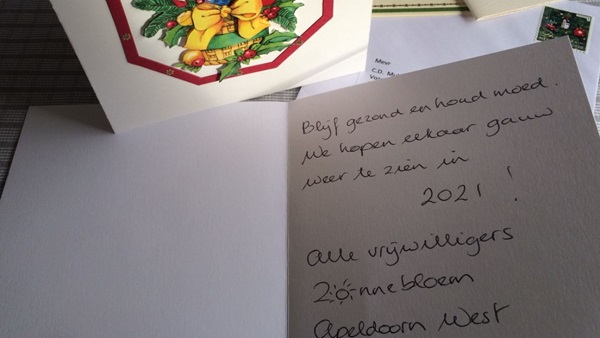 Meer
C.D. M
Blijf gezond en houd moed.
We hopen elkaar gauw
weer te zien in
2021 !
Alle vrijwilligers
Zonnebloem
Apeldoorn West